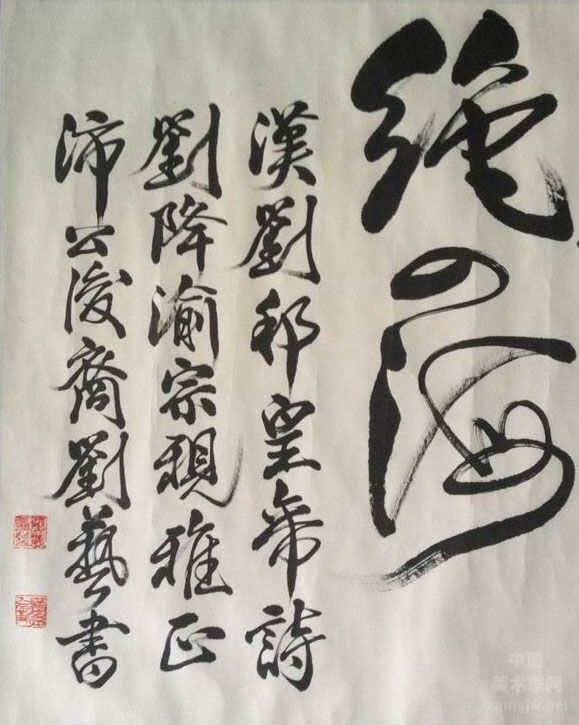 絶四海
漢劉邦皇帝詩
劉降渝宗親雅正
沛公後裔劉藝書
中國
美术家网
zgmsjw.net